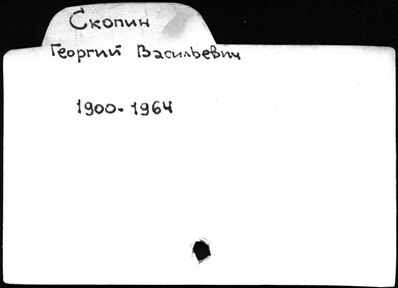 Скопин
Георгий Васильевич
1900-1964